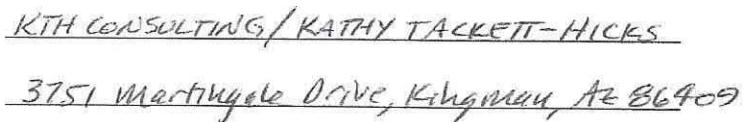 KTH CONSULTING/KATHY TACKETT-HICKS
3751 Martingale Drive, Kingman, AZ 86409